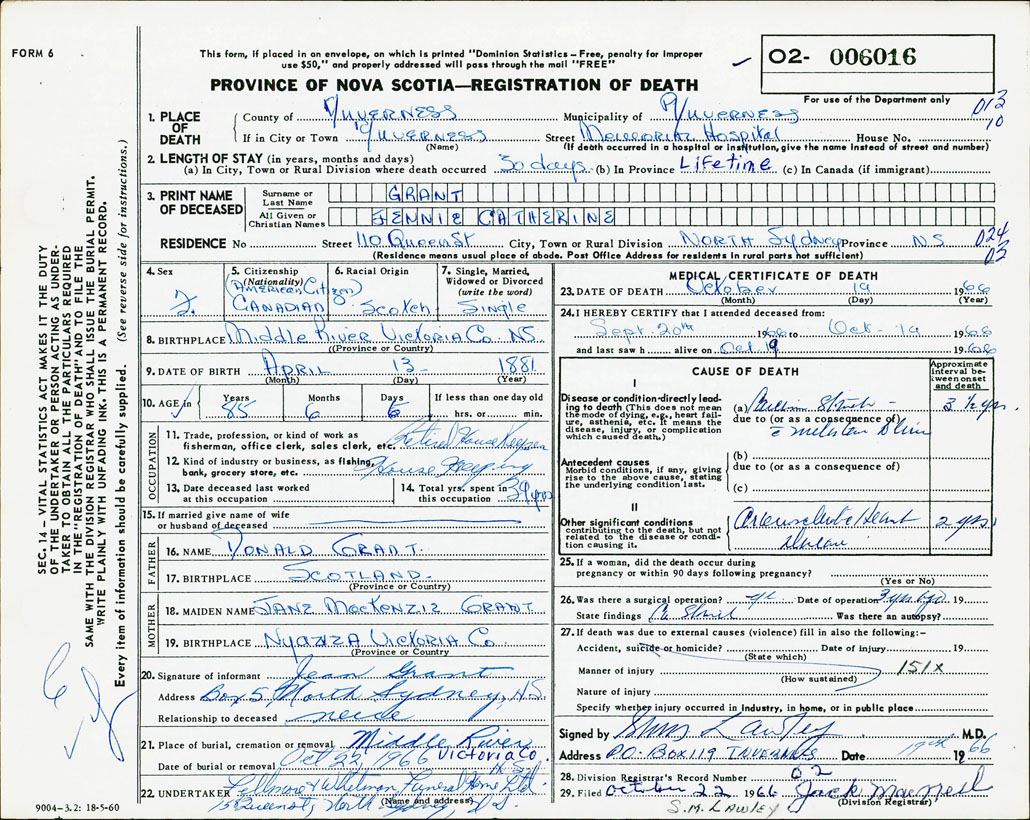 FORM 6
This form, if placed in an envelope, on which is printed "Dominion Statistics – Free, penalty for improper
use $50," and properly addressed will pass through the mail "FREE"
PROVINCE OF NOVA SCOTIA—REGISTRATION OF DEATH
O2- 006016
For use of the Department only
013
10
1. PLACE OF DEATH
County of Inverness Municipality of Inverness
If in City or Town Inverness Street Memorial Hospital House No.
(Name) (If death occurred in a hospital or institution, give the name instead of street and number)
2. LENGTH OF STAY (in years, months and days)
(a) In City, Town or Rural Division where death occurred 30 days (b) In Province Lifetime (c) In Canada (if immigrant)
3. PRINT NAME OF DECEASED
Surname or Last Name GRANT
All Given or Christian Names JENNIE CATHERINE
RESIDENCE No Street 110 Queen St City, Town or Rural Division North Sydney Province N.S. 024
02
(Residence means usual place of abode. Post Office Address for residents in rural parts not sufficient)
4. Sex F.
5. Citizenship (Nationality) (American Citizen) Canadian
6. Racial Origin Scotch
7. Single, Married, Widowed or Divorced (write the word) Single
8. BIRTHPLACE Middle River Victoria Co. NS
(Province or Country)
9. DATE OF BIRTH April 13 1881
(Month) (Day) (Year)
10. AGE in Years 85 Months 6 Days 6 If less than one day old hrs. or min.
OCCUPATION
11. Trade, profession, or kind of work as fisherman, office clerk, sales clerk, etc. Retired House Keeper
12. Kind of industry or business, as fishing, bank, grocery store, etc. House Keeping
13. Date deceased last worked at this occupation
14. Total yrs. spent in this occupation 39 yrs
15. If married give name of wife or husband of deceased
FATHER
16. NAME Donald Grant.
17. BIRTHPLACE Scotland.
(Province or Country)
MOTHER
18. MAIDEN NAME Jane MacKenzie Grant
19. BIRTHPLACE Nyanza Victoria Co.
(Province or Country)
20. Signature of informant Jean Grant
Address Box 5 North Sydney, N.S.
Relationship to deceased neice
21. Place of burial, cremation or removal Middle River
Victoria Co.
Date of burial or removal Oct 22, 1966 N.S.
22. UNDERTAKER Fillmore & Whitman Funeral Home Ltd
(Name and address)
Queen St, North Sydney, N.S.
9004–3.2: 18-5-60
MEDICAL CERTIFICATE OF DEATH
23. DATE OF DEATH October 19 1966
(Month) (Day) (Year)
24. I HEREBY CERTIFY that I attended deceased from:
Sept. 20th 1966 to Oct - 19 1966
and last saw h alive on Oct 19 1966
CAUSE OF DEATH
Approximate interval between onset and death
I
Disease or condition directly leading to death (This does not mean the mode of dying, e.g., heart failure, asthenia, etc. It means the disease, injury, or complication which caused death.)
(a) 3 ½ yrs.
due to (or as a consequence of)
Antecedent causes
Morbid conditions, if any, giving rise to the above cause, stating the underlying condition last.
(b)
due to (or as a consequence of)
(c)
II
Other significant conditions
contributing to the death, but not related to the disease or condition causing it.
Heart 2 yrs
25. If a woman, did the death occur during
pregnancy or within 90 days following pregnancy?
(Yes or No)
26. Was there a surgical operation? Date of operation 3 yrs ago 19
State findings Was there an autopsy?
27. If death was due to external causes (violence) fill in also the following:–
Accident, suicide or homicide? Date of injury 19
(State which)
Manner of injury 151X
(How sustained)
Nature of injury
Specify whether injury occurred in industry, in home, or in public place
Signed by Lawley M.D.
Address P.O. Box 119 Inverness Date 1966
28. Division Registrar's Record Number 62
29. Filed October 22 1966 Jack MacNeil
(Division Registrar)
S.M. LAWLEY
SEC. 14 – VITAL STATISTICS ACT MAKES IT THE DUTY
OF THE UNDERTAKER OR PERSON ACTING AS UNDER-
TAKER TO OBTAIN ALL THE PARTICULARS REQUIRED
IN THE "REGISTRATION OF DEATH" AND TO FILE THE
SAME WITH THE DIVISION REGISTRAR WHO SHALL ISSUE THE BURIAL PERMIT.
WRITE PLAINLY WITH UNFADING INK. THIS IS A PERMANENT RECORD.
Every item of information should be carefully supplied. (See reverse side for instructions.)